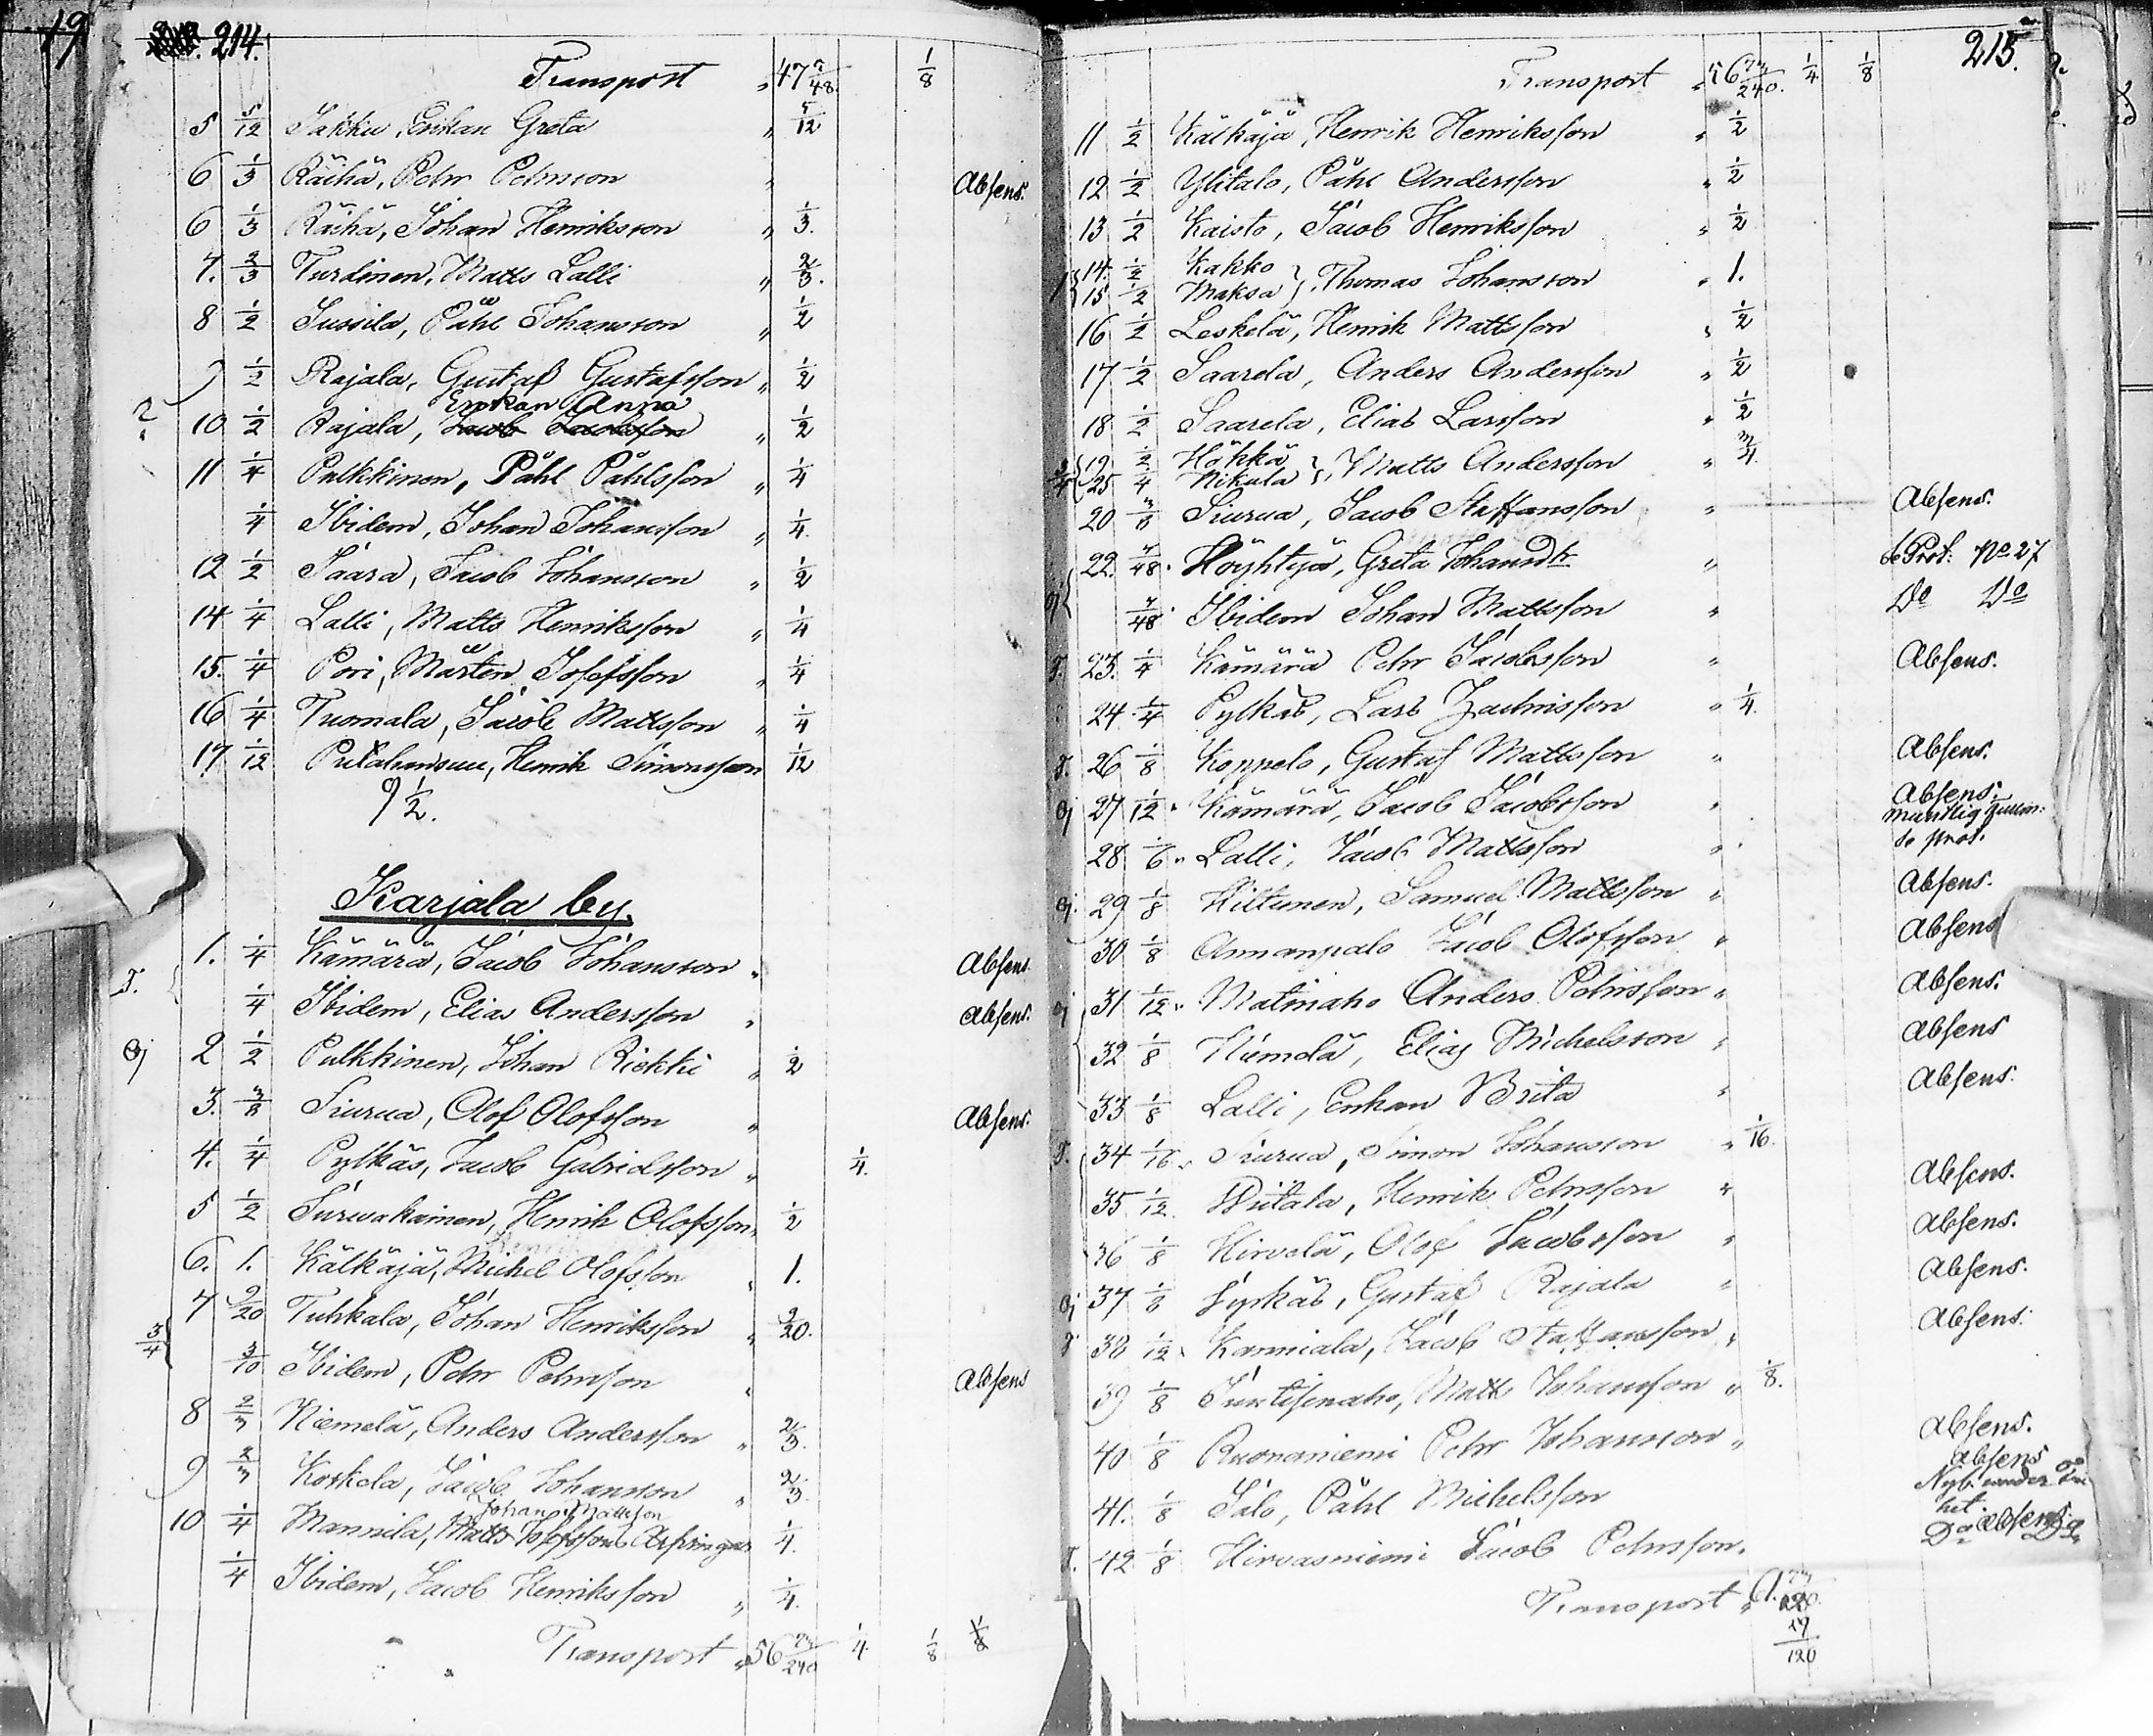 19
214.
Transport " 47 7/48. 1/8
5 5/12 Jakku, Enkan Greta " 5/12
6 1/3 Räihä, Pehr Pehrsson " Absens.
6 1/3 Räihä, Johan Henriksson " 1/3.
7. 2/3 Turdinen, Matts Lalli " 2/3.
8 1/2 Jussila, Påhl Johansson " 1/2
9 1/2 Rajala, Gustaf Gustafsson " 1/2
Enkan Anna
2. 10 1/2 Rajala, Jacob Jacobsson " 1/2
11 1/4 Pulkkinen, Påhl Påhlsson " 1/4
1/4 Ibidem, Johan Johansson " 1/4
12 1/2 Jaara, Jacob Johansson " 1/2
14 1/4 Lalli, Matts Henriksson " 1/4
15. 1/4 Pori, Mårten Josefsson " 1/4
16 1/4 Tuomala, Jacob Mattsson " 1/4
17 1/12 Henrik Simonsson 1/12
9 1/2.
Karjala by.
1. 1/4 Kämärä, Jacob Johansson " Absens
1/4 Ibidem, Elias Andersson " Absens.
2 1/2 Pulkkinen, Johan Riekki " 1/2
3. 3/8 Siurua, Olof Olofsson " Absens.
4. 1/4 Pylkäs, Jacob Gabrielsson " 1/4.
5 1/2 Turwakainen, Henrik Olofsson " 1/2
6. 1. Kälkäjä, Michel Olofsson " 1.
3/4 7 9/20 Tuhkala, Johan Henriksson " 9/20.
3/10 Ibidem, Pehr Pehrsson " Absens
8 2/3 Niemelä, Anders Andersson " 2/3.
9 2/3 Koskela, Jacob Johansson " 2/3.
Johan Mattsson
10 1/4 Mannila, Matts Josefsson Arfvingar 1/4.
1/4 Ibidem, Jacob Henriksson " 1/4.
Transport " 56 73/240 1/4 1/8 1/8
215.
Transport " 56 73/240. 1/4 1/8
11 1/2 Kälkäjä, Henrik Henriksson " 1/2
12 1/2 Ylitalo, Påhl Andersson " 1/2
13 1/2 Kaisto, Jacob Henriksson " 1/2
14. 1/2 Kakko
1 } Thomas Johansson " 1.
15 1/2 Maksa
16 1/2 Leskelä, Henrik Mattsson " 1/2
17 1/2 Saarela, Anders Andersson " 1/2
18 1/2 Saarela, Elias Larsson " 1/2
19 1/2 Höhkä
3/4 } Matts Andersson " 3/4.
25 1/4 Nikula
20 3/8 Siurua, Jacob Staffansson " Absens.
22. 7/48. Höyhtyä, Greta Johansdtr " se Prot: No 27
7/48. Ibidem Johan Mattsson " Do Do
23. 1/4 Kämärä Pehr Jacobsson " Absens.
24. 1/4 Pylkäs, Lars Zachrisson " 1/4.
26 1/8 Koppelo, Gustaf Mattsson " Absens.
27 1/12. Kämärä, Jacob Jacobsson " Absens.
muntlig
28 1/6 " Lalli, Jacob Mattsson " se prot.
29 1/8 Hiltunen, Samuel Mattsson " Absens.
30 1/8 Annanpalo Jacob Olofsson " Absens
31 1/12 " Matinaho Anders Pehrsson " Absens.
32 1/8 Niemelä, Elias Michelsson " Absens
33 1/8 Lalli, Enkan Brita " Absens.
34 1/16 " Siurua, Simon Johansson " 1/16.
35 1/12 Wiitala, Henrik Pehrsson " Absens.
36 1/8 Hirvelä, Olof Jacobsson " Absens.
37 1/8 Gustaf Rajala " Absens.
38 1/12 " Kanniala, Jacob Staffansson " Absens.
39 1/8 Matts Johansson " 1/8.
40 1/8 Ruonaniemi Pehr Johansson " Absens.
Absens
41. 1/8 Jalo, Påhl Michelsson Nyb. under
42 1/8 Hirvasniemi Jacob Pehrsson. Do Absens Do
Transport " 61.
17/120